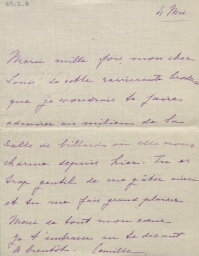 4 Mai
Merci mille fois, mon cher
Louis, la table ravissante
que je voudrais te faire
admirer au milieu de la
salle de billard où elle nous
charme depuis hier. Tu es
trop gentil de me gâter ainsi
et tu me fais grand plaisir.
Merci de tout mon cœur
je t'embrasse en te disant
A bientôt. Camille